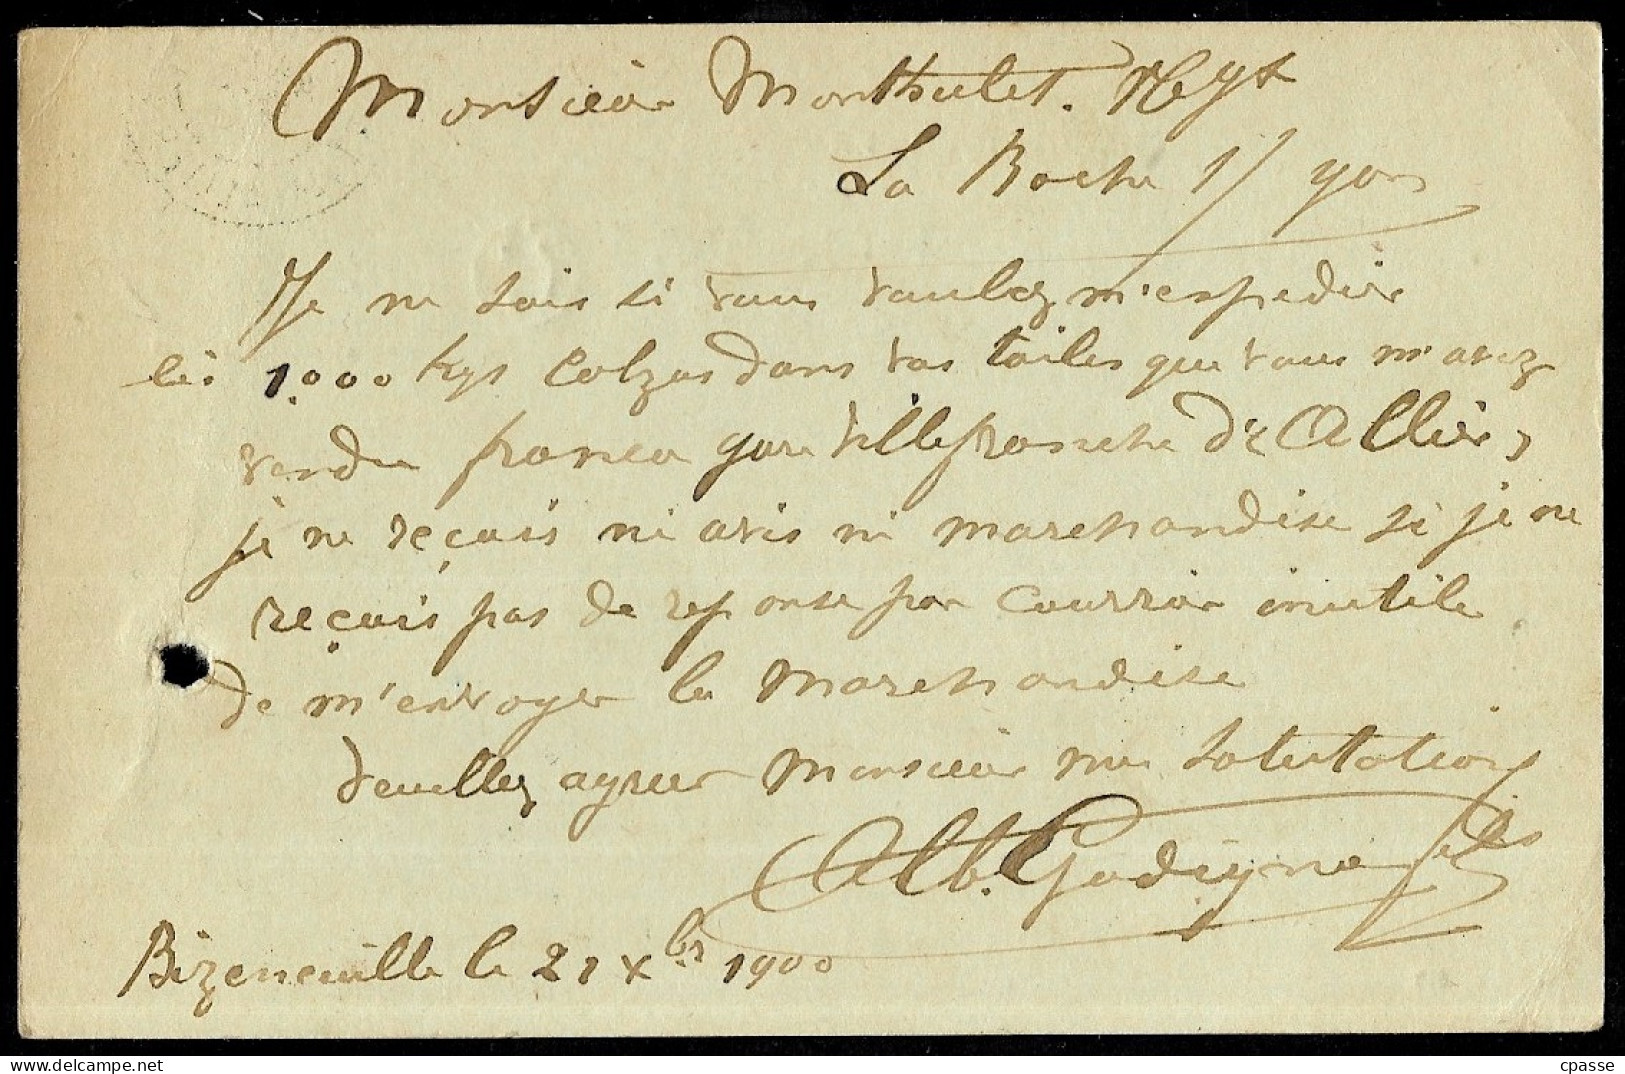 Monsieur Monthulet. Ngt
La Roche s/ yon
Je ne sais si vous voulez m'expedier
les 1.000 kgs Colzas dans vos toiles que vous m'avez
vendu franco gare Villefranche d'Allier,
je ne reçois ni avis ni marchandise si je ne
reçois pas de reponse par courrier inutile
de m'envoyer la marchandise
Veuillez agreer Monsieur mes salutations
Alb. Godigne
Bizeneuille le 21 Xbr 1900
cpasse